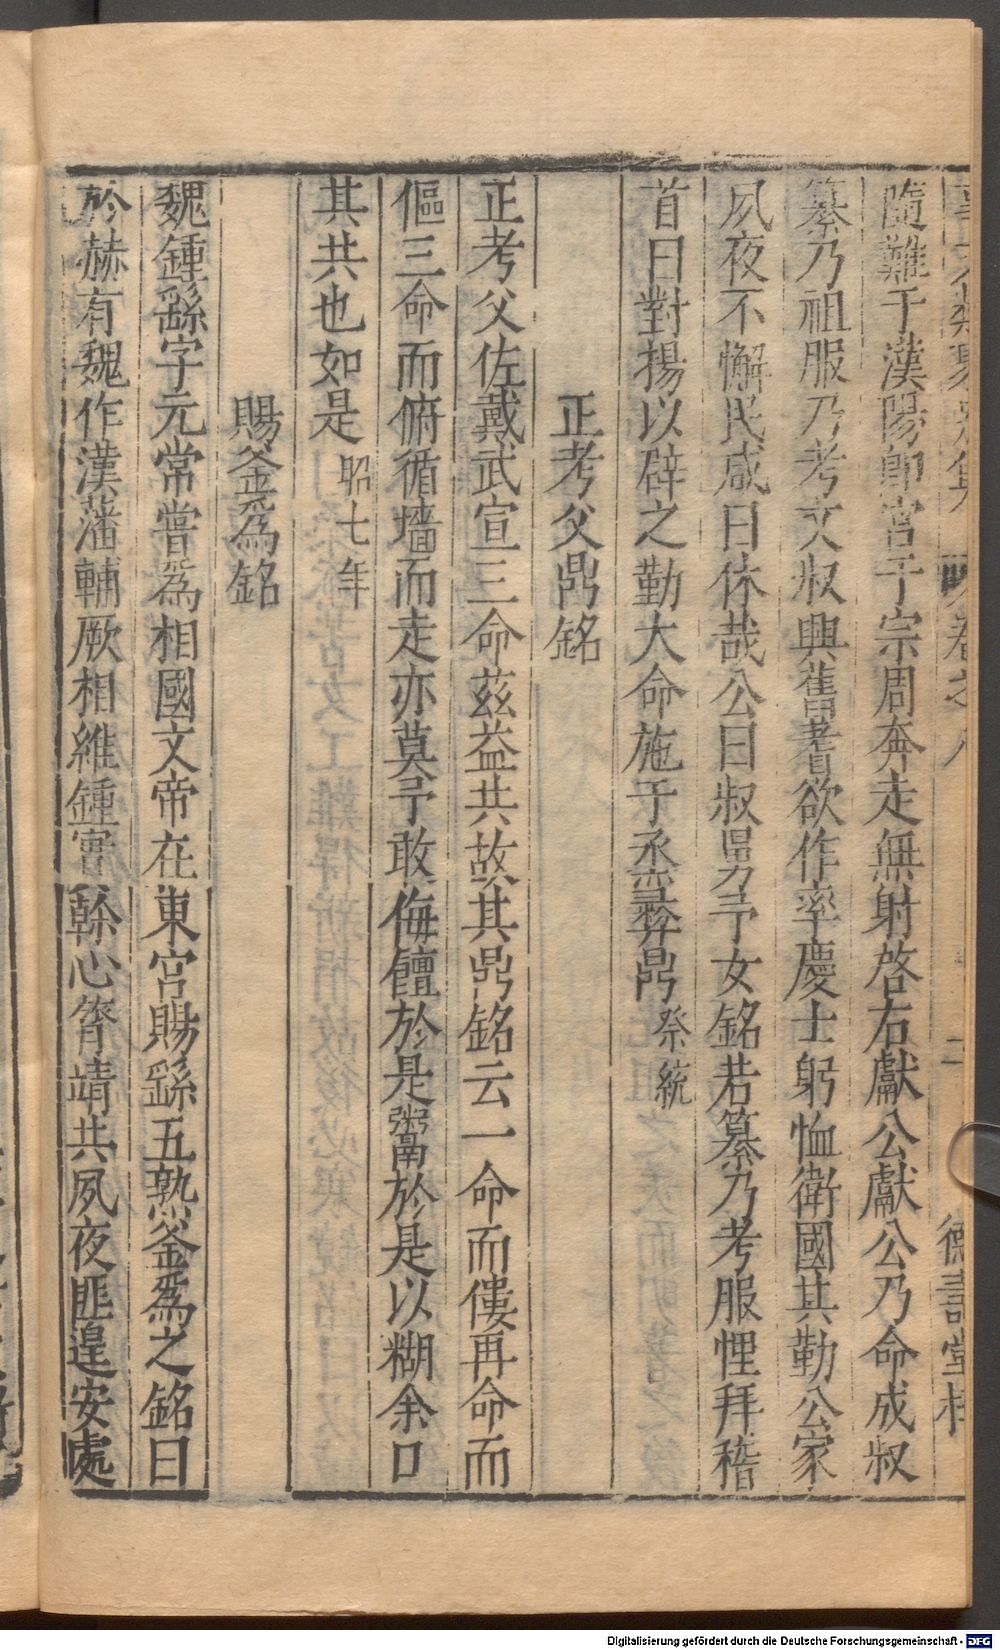 事文類聚別集 卷之八 二 德壽堂梓
隨難于漢陽即宮于宗周奔走無射啓右獻公獻公乃命成叔
纂乃祖服乃考文叔興舊耆欲作率慶士躬恤衛國其勤公家
夙夜不懈民咸曰休哉公曰叔舅予女銘若纂乃考服悝拜稽
首曰對揚以辟之勤大命施于烝彝鼎 祭統
正考父鼎銘
正考父佐戴武宣三命茲益共故其鼎銘云一命而僂再命而
傴三命而俯循墻而走亦莫予敢侮饘於是鬻於是以糊余口
其共也如是 昭七年
賜釜為銘
魏鍾繇字元常嘗為相國文帝在東宮賜繇五熟釜為之銘曰
於赫有魏作漢藩輔厥相維鍾實幹心膂靖共夙夜匪遑安處
Digitalisierung gefördert durch die Deutsche Forschungsgemeinschaft - DFG